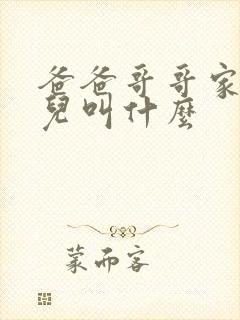 爸爸哥哥家
兒叫什麼
蒙而客